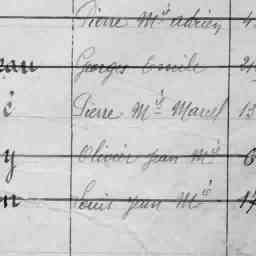 Pierre M.ie Adrien 4
eau Georges Emile 21
c Pierre M.ie Marcel 13
y Olivier Jean M.ie 6
n Louis Jean M.ie 17